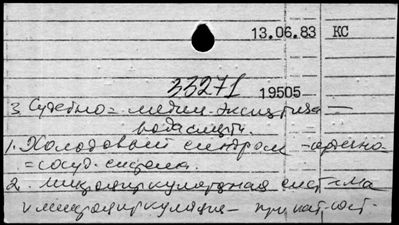 13.06.83 КС
33271 19505
3. Судебно = медиц. экспертиза —
1. Холодовый синдром —
= сосуд. система.
2. микроциркуляторная система
и микроциркуляция — при пат. сост.